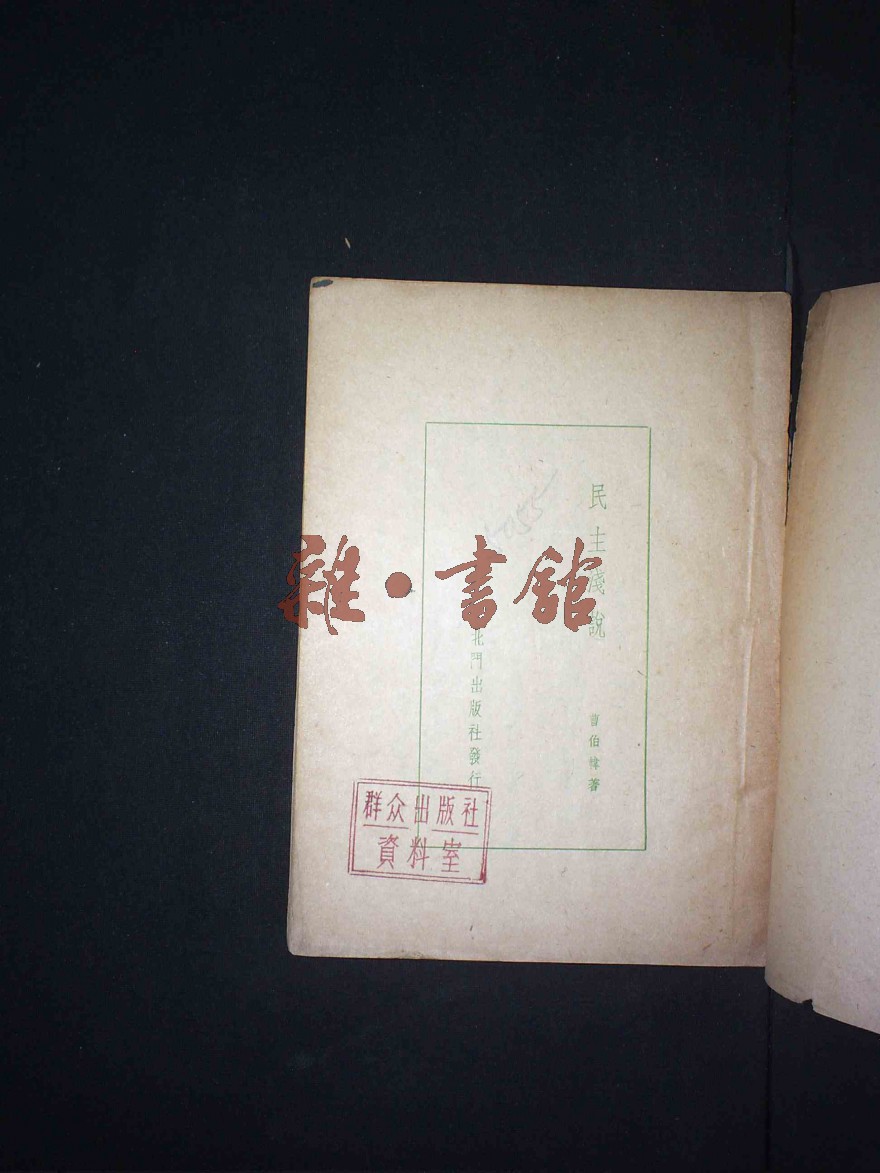 民主淺說
曹伯韓著
北門出版社發行
雜·書館
群众出版社
資料室